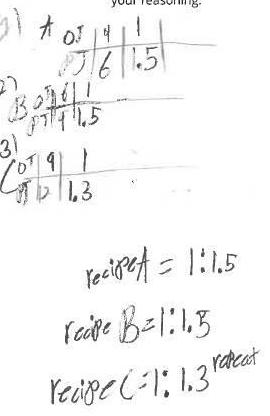 your reasoning.
A OJ 4 1
PJ 6 1.5
2)
B OJ 6 1
PJ 4 1.5
3)
C OJ 9 1
PJ 12 1.3
recipe A = 1:1.5
recipe B = 1:1.5
recipe C = 1:1.3 repeat